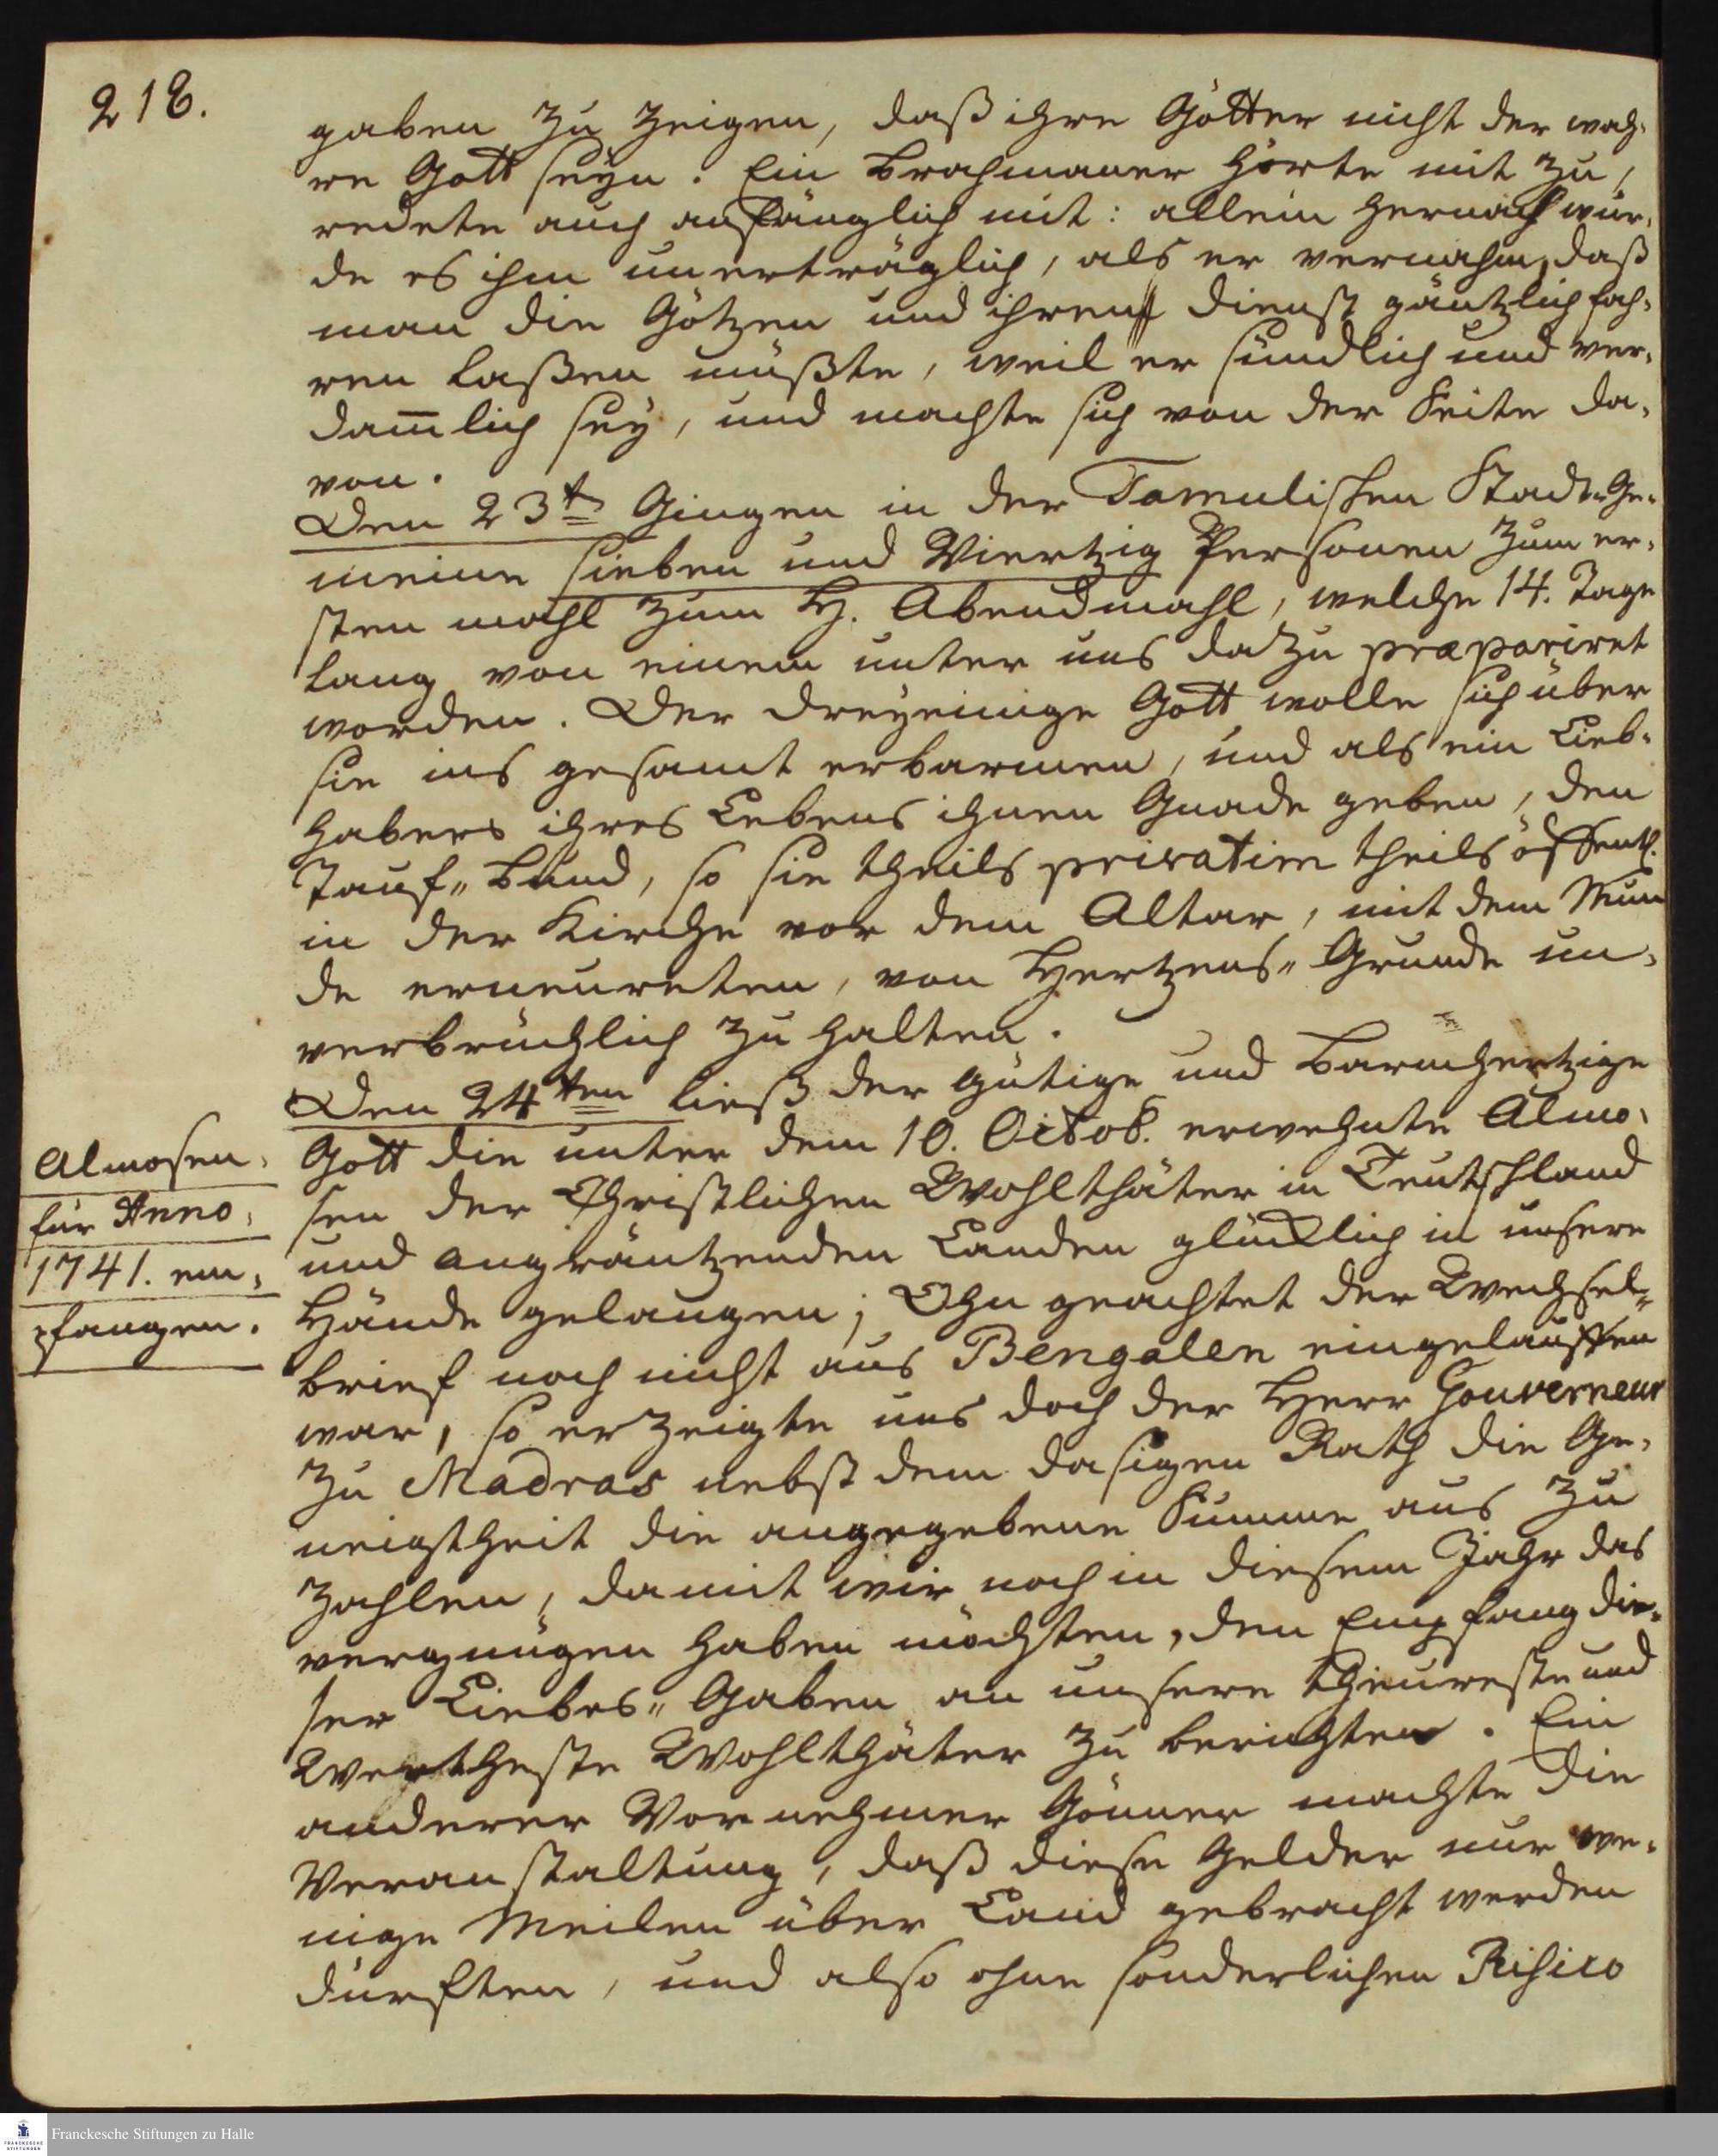 218.
gaben zu zeigen, daß ihre Götter nicht der wah-
re Gott seyn. Ein Brahmaner hörte mit zu,
redete auch anfänglich mit: allein hernach wur-
de es ihm unerträglich, als er vernahm, daß
man die Götzen und ihren Dienst gäntzlich fah-
ren laßen müßte, weil er sündlich und ver-
dam̅lich sey, und machte sich von der Seite da-
von.
Den 23t Gingen in der Tamulischen Stadt-Ge-
meine sieben und Viertzig Personen zum er-
sten mahl zum H. Abendmahl, welche 14. Tage
lang von einem unter uns dazu præpariret
worden. Der Dreyeinige Gott wolle sich über
sie ins gesamt erbarmen, und als ein Lieb-
haber ihres Lebens ihnen Gnade geben, den
Tauf-Bund, so sie theils privatim theils öffentl.
in der Kirche vor dem Altar, mit dem Mun
de erneureten, von Hertzens-Grunde un-
verbrüchlich zu halten.
Den 24ten ließ der gütige und Barmhertzige
Gott die unter dem 10. Octob. erwehnte Almo-
sen der Christlichen Wohlthäter in Teutschland
und angräntzenden Landen glücklich in unsere
Hände gelangen; Ohn geachtet der Wechsel-
brief noch nicht aus Bengalen eingelauffen
war, so erzeigte uns doch der Herr Gouverneur
zu Madras nebst dem dasigen Rath die Ge-
neigtheit die angegebene Summe aus zu
zahlen, damit wir noch in diesem Jahr das
vergnügen haben möchten, den Empfang die-
ser Liebes-Gaben an unsere theureste und
Wertheste Wohlthäter zu berichten. Ein
anderer Vornehmer Gönner machte die
Veranstaltung, daß diese Gelder nur we-
nige Meilen über Land gebracht werden
durften, und also ohne sonderlichen Risico
Almosen,
für Anno,
1741. em-
pfangen.
Franckesche Stiftungen zu Halle